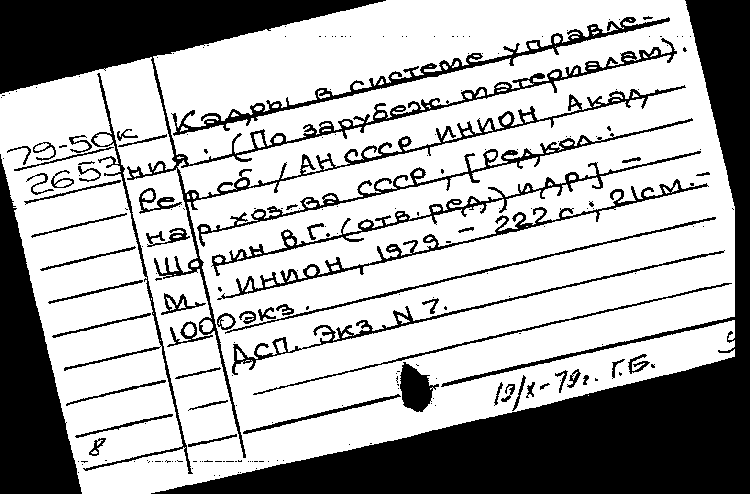 79-50к
2653
Кадры в системе управле-
ния: (По зарубеж. материалам).
Реф. сб. / АН СССР, ИНИОН, Акад.
нар. хоз-ва СССР; [Редкол.:
Шорин В.Г. (отв. ред.) и др.]. –
М.: ИНИОН, 1979. – 222 с.; 21см. –
1000экз.
ДСП. Экз. N 7.
19/X-79г. Г.Б.
8